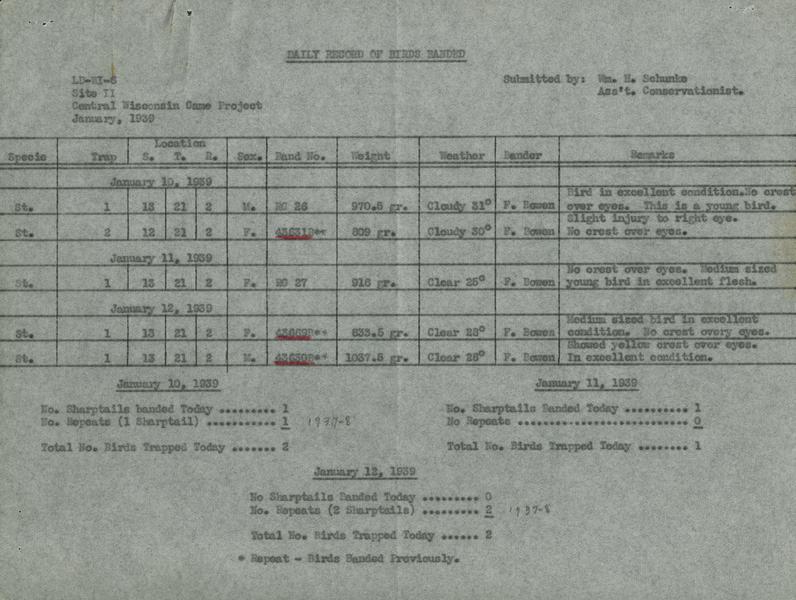 DAILY RECORD OF BIRDS BANDED
LD-WI-8
Submitted by: Wm. H. Schunke
Site II
Ass't. Conservationist.
Central Wisconsin Game Project
January, 1939
Location
Specie Trap S. T. R. Sex. Band No. Weight Weather Bander Remarks
January 10, 1939
Bird in excellent condition.No crest
St. 1 13 21 2 M. RG 26 970.5 gr. Cloudy 31° F. Bowen over eyes. This is a young bird.
Slight injury to right eye.
St. 2 12 21 2 F. 436312** 809 gr. Cloudy 30° F. Bowen No crest over eyes.
January 11, 1939
No crest over eyes. Medium sized
St. 1 13 21 2 F. RG 27 916 gr. Clear 25° F. Bowen young bird in excellent flesh.
January 12, 1939
Medium sized bird in excellent
St. 1 13 21 2 F. ** 833.5 gr. Clear 28° F. Bowen condition. No crest overy eyes.
Showed yellow crest over eyes.
St. 1 13 21 2 M. ** 1037.5 gr. Clear 28° F. Bowen In excellent condition.
January 10, 1939
No. Sharptails banded Today ......... 1
No. Repeats (1 Sharptail) ........... 1 1937-8
Total No. Birds Trapped Today ....... 2
January 11, 1939
No. Sharptails Banded Today .......... 1
No Repeats ........................... 0
Total No. Birds Trapped Today ........ 1
January 12, 1939
No Sharptails Banded Today ......... 0
No. Repeats (2 Sharptails) ......... 2 1937-8
Total No. Birds Trapped Today ...... 2
* Repeat - Birds Banded Previously.